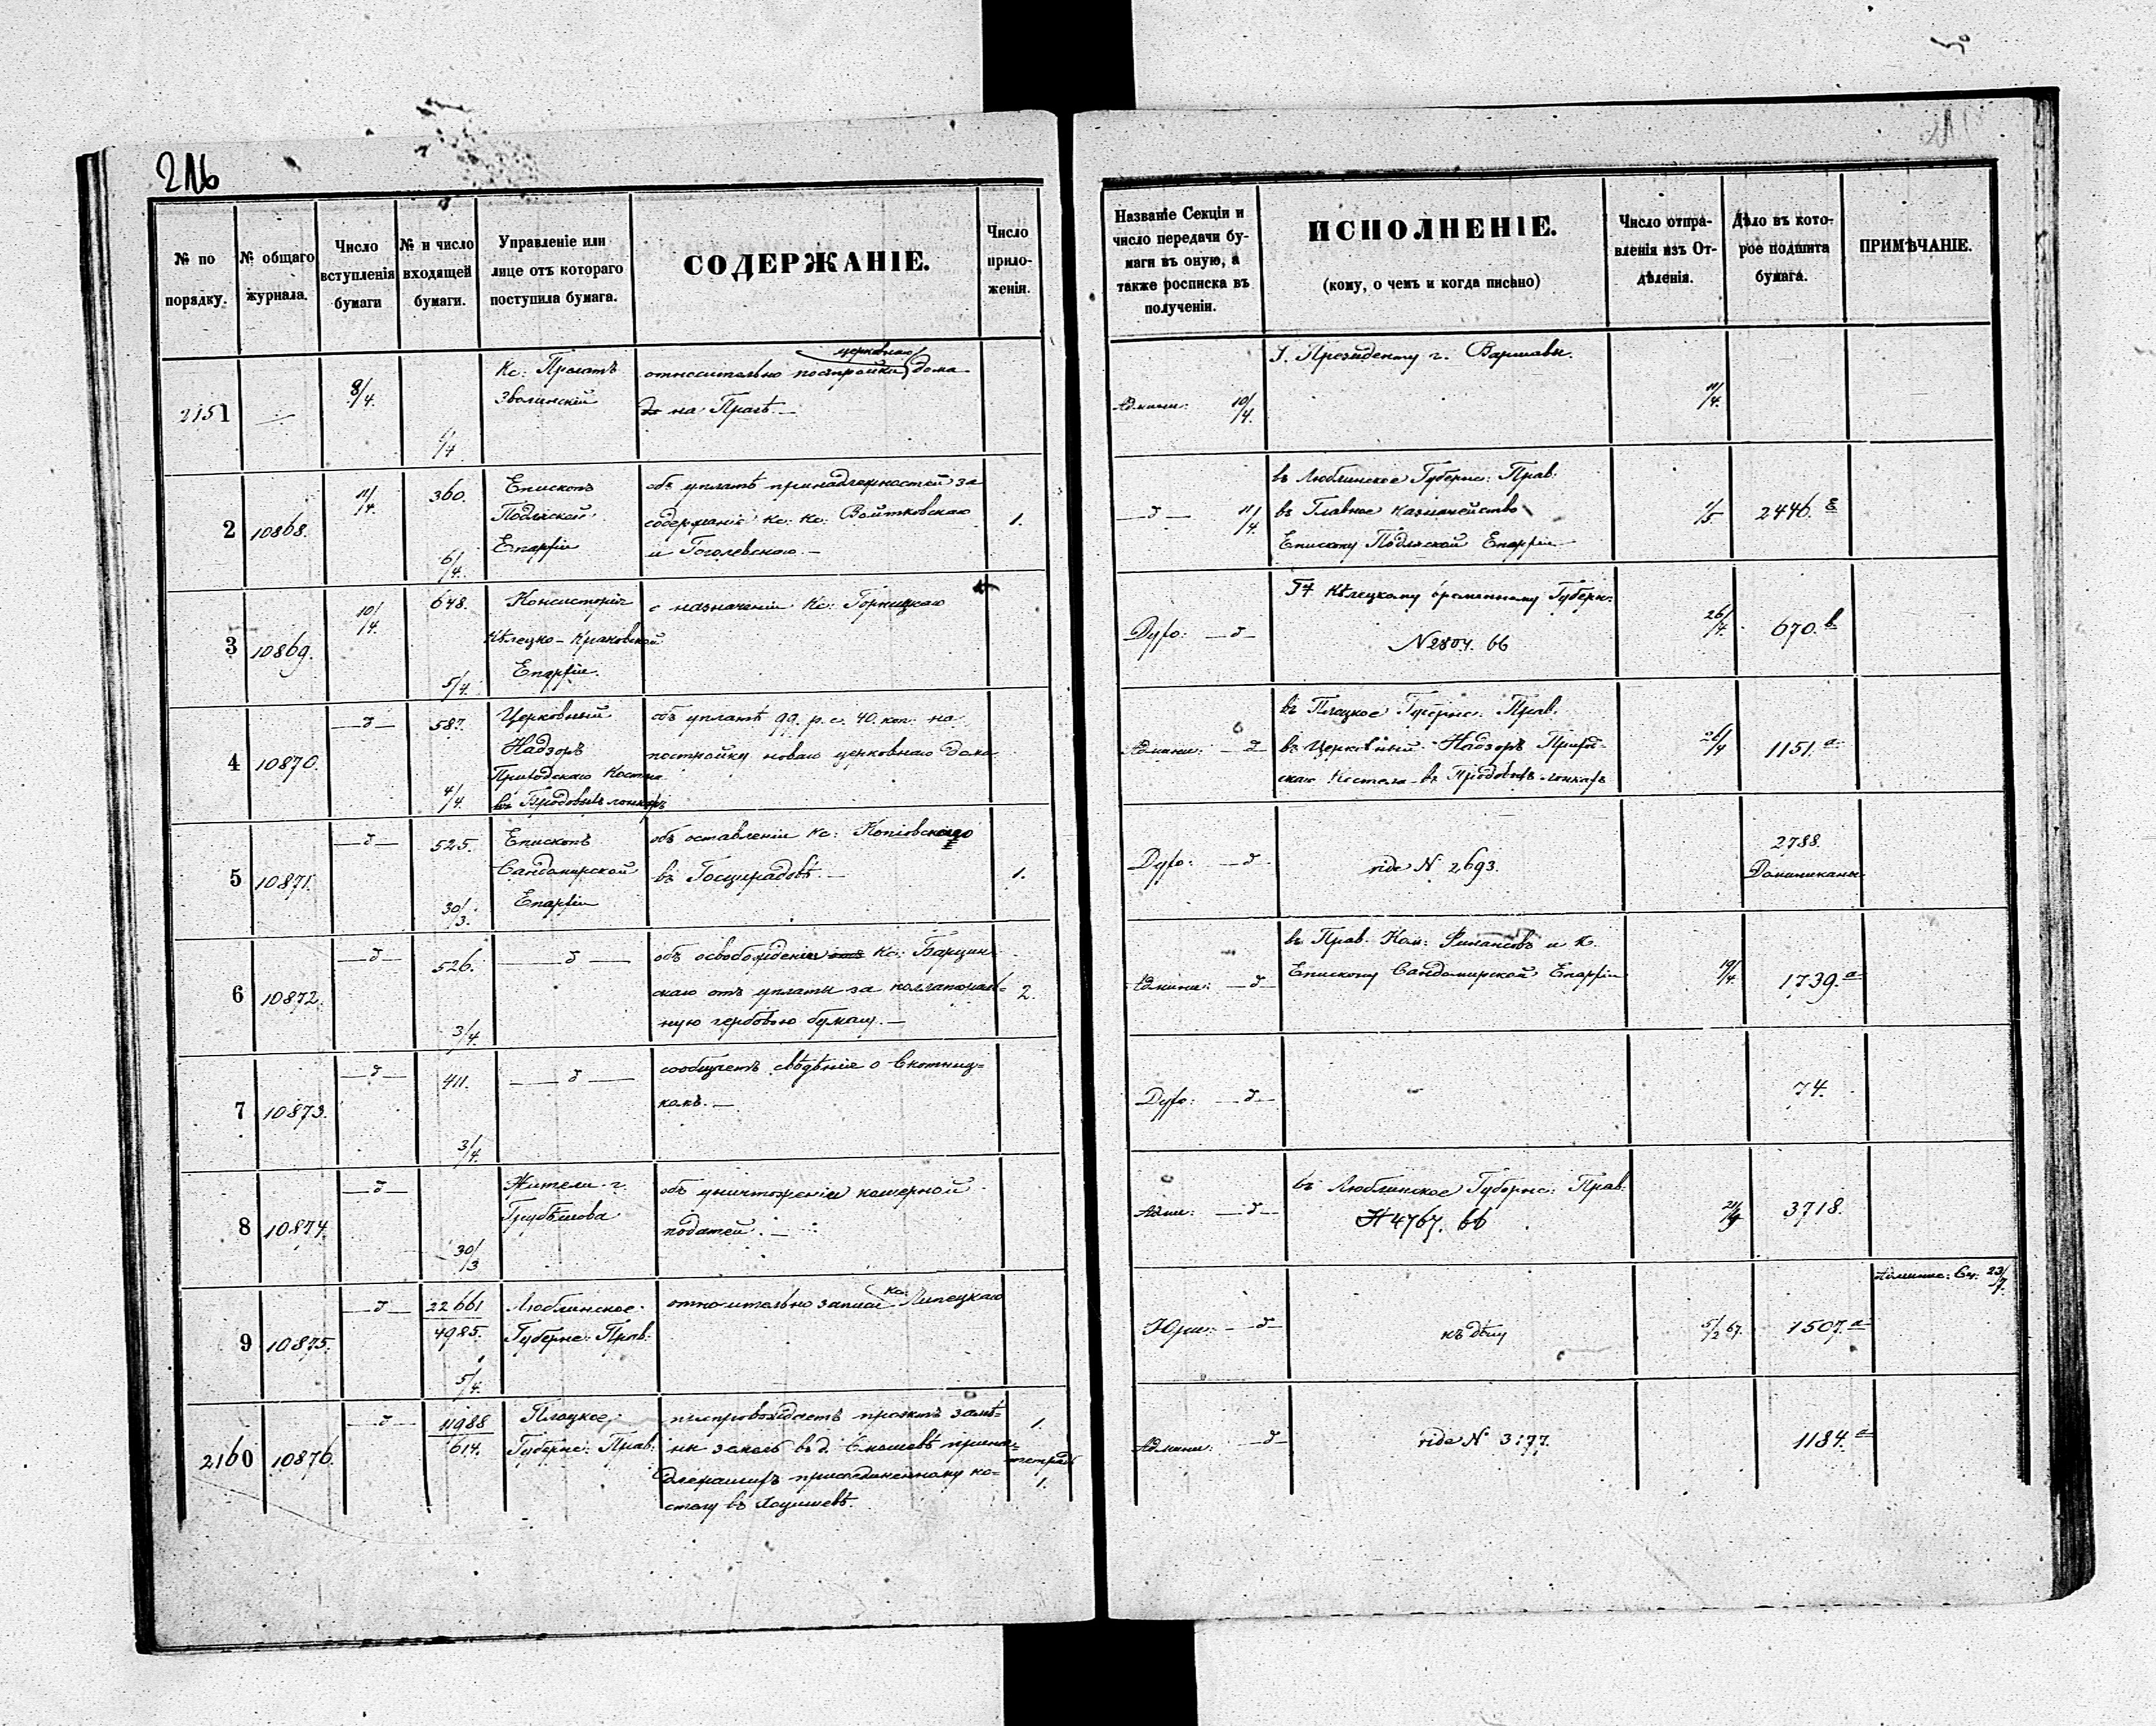 216
№ по порядку.
№ общаго журнала.
Число вступленія бумаги
№ и число входящей бумаги.
Управленіе или лице отъ котораго поступила бумага.
СОДЕРЖАНІЕ.
Число приложенія.
Названіе Секціи и число передачи бумаги въ оную, а также росписка въ полученіи.
ИСПОЛНЕНІЕ.
(кому, о чемъ и когда писано)
Число отправленія изъ Отдѣленія.
Дѣло въ которое подшита бумага.
ПРИМѢЧАНІЕ.
2151
8/4.
/4
Кс: Прелатъ
Зволинскій
церковнаго
относительно постройки дома
на Прагѣ. —
Админ: 10/4.
Президенту г. Варшавы.
11/4.
2
10868.
11/4.
360.
6/4.
Епископъ
Подляской
Епархіи
объ уплатѣ принадлежностей за
содержаніе Кс: Кс: Войтковскаго
и Гоголевскаго. —
1.
— д — 11/4.
въ Люблинское Губернс: Прав.
въ Главное Казначейство
Епископу Подляской Епархіи
1/5
2446.
3
10869.
10/4.
648.
5/4.
Консисторія
Кѣлецко-Краковской
Епархіи.
о назначеніи Кс: Горницкаго
Духо: — д —
Кѣлецкому временному Губерн:
N 2804. 66
26/4.
670. b
4
10870.
— д —
587.
4/4.
Церковный
Надзоръ
Приходскаго Костела
въ
объ уплатѣ 99. р. с. 40. коп. на
постройку новаго церковнаго дома
Админ: — д —
въ Плоцкое Губернс: Прав.
въ Церковный Надзоръ Приход-
скаго Костела въ
26/4
1151. a
5
10871.
— д —
525.
30/3.
Епископъ
Сандомирской
Епархіи
объ оставленіи Кс: Копіовскаго
въ Госцирадовѣ. —
1.
Духо: — д —
vide N 2693.
2788.
Доминиканы
6
10872.
— д —
526.
3/4.
— д —
объ освобожденіи Кс: Барцин
скаго отъ уплаты за
ную гербовою бумагу. —
2.
Админ: — д —
въ Прав. Ком: Финансовъ и К.
Епископу Сандомирской Епархіи
19/4.
1739. a
7
10873.
— д —
411.
3/4.
— д —
сообщаетъ свѣдѣніе о Скотниц=
комъ. —
Духо: — д —
74.
8
10874.
— д —
30/3
Жители г.
Грубѣшова
объ уничтоженіи кошерной
податей. —
Адми: — д —
въ Люблинское Губернс: Прав:
N 4767. 66
3718.
9
10875.
— д —
22661
4985.
5/4.
Люблинское
Губернс: Прав:
относительно записи Кс: Липецкаго
Юри: — д —
къ дѣлу
5/2 67.
1507. a
23/7.
2160
10876.
— д —
11988
614.
Плоцкое
Губернс: Прав:
препровождаетъ проэктъ замѣ=
ны земель въ д. прина=
длежащихъ присоединенному ко=
стелу въ
1.
тетрадь
1.
Админ: — д —
vide N 3177.
1184. a